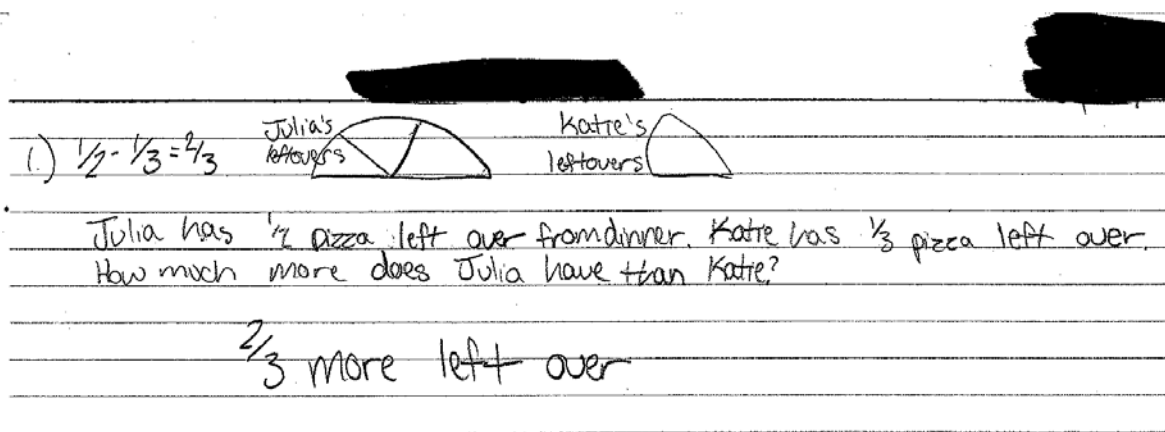 1.) 1/2 - 1/3 = 2/3
Julia's
leftovers
Katie's
leftovers
Julia has 1/2 pizza left over from dinner. Katie has 1/3 pizza left over.
How much more does Julia have than Katie?
2/3 more left over